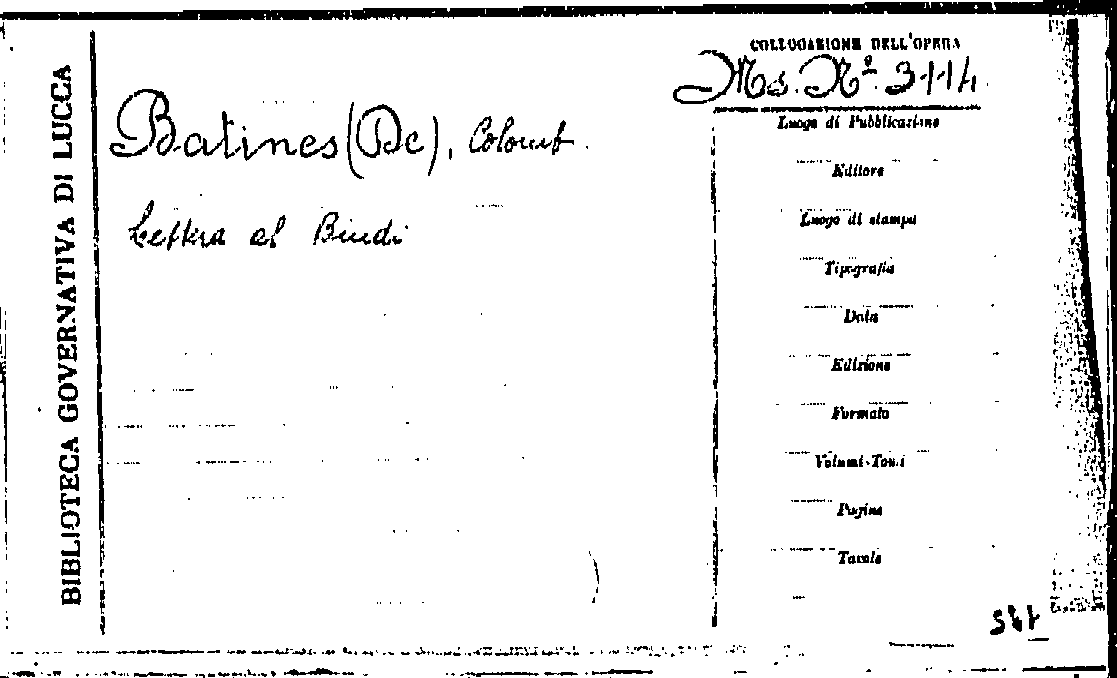 BIBLIOTECA GOVERNATIVA DI LUCCA
COLLOCAZIONE DELL'OPERA
Ms. Nº 3114
Batines (De), Colomb
Lettera al Bindi
Luogo di Pubblicazione
Editore
Luogo di stampa
Tipografia
Data
Edizione
Formato
Volumi-Tomi
Pagine
Tavole